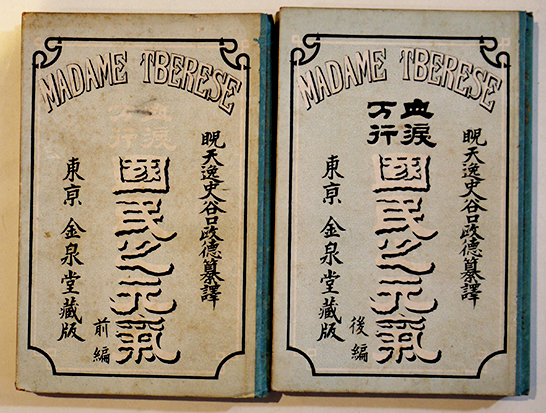 MADAME TBERESE
睨天逸史谷口政德纂譯
血淚
万行
國民之元氣
前編
東京 金泉堂藏版
MADAME TBERESE
睨天逸史谷口政德纂譯
血淚
万行
國民之元氣
後編
東京 金泉堂藏版